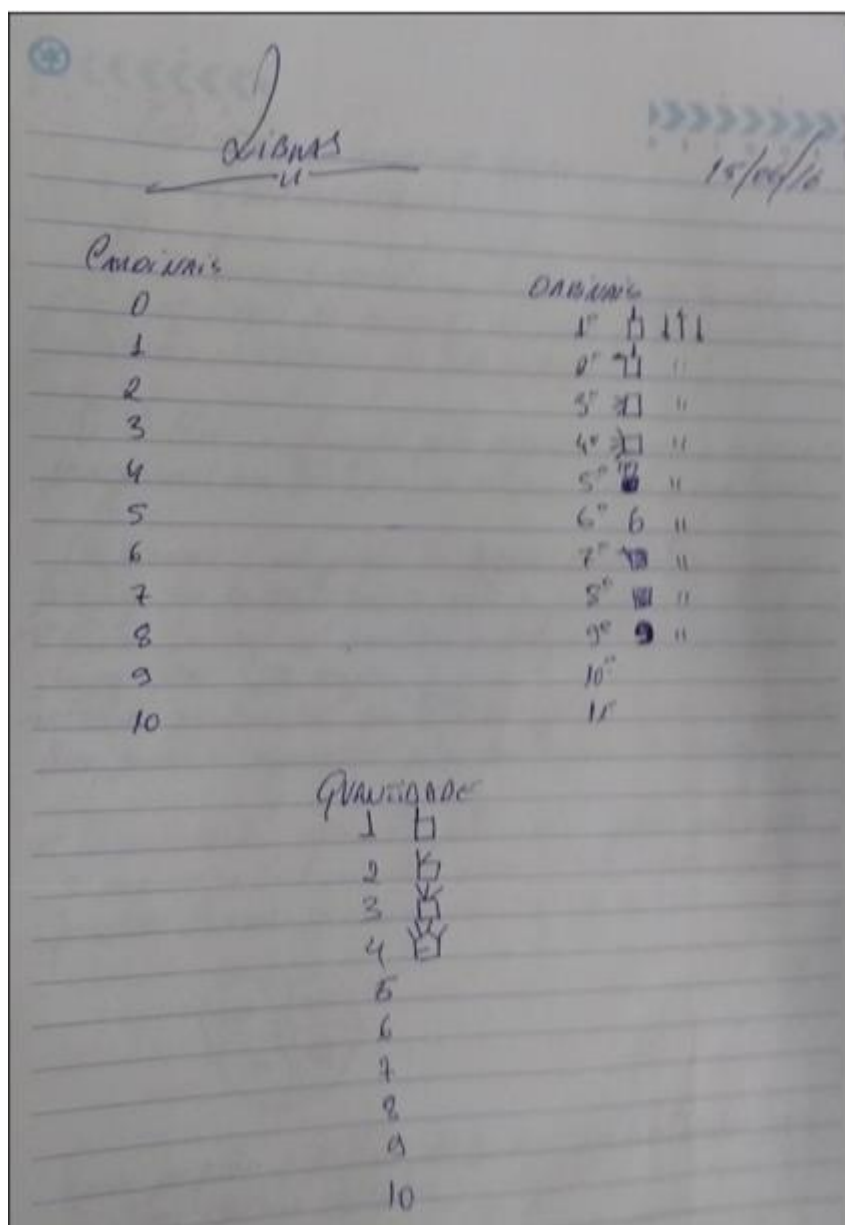 LIBRAS
15/06/16
CARDINAIS
0
1
2
3
4
5
6
7
8
9
10
ORDINAIS
1º
2º "
3º "
4º "
5º "
6º 6 "
7º "
8º "
9º 9 "
10º
11º
QUANTIDADE
1
2
3
4
5
6
7
8
9
10